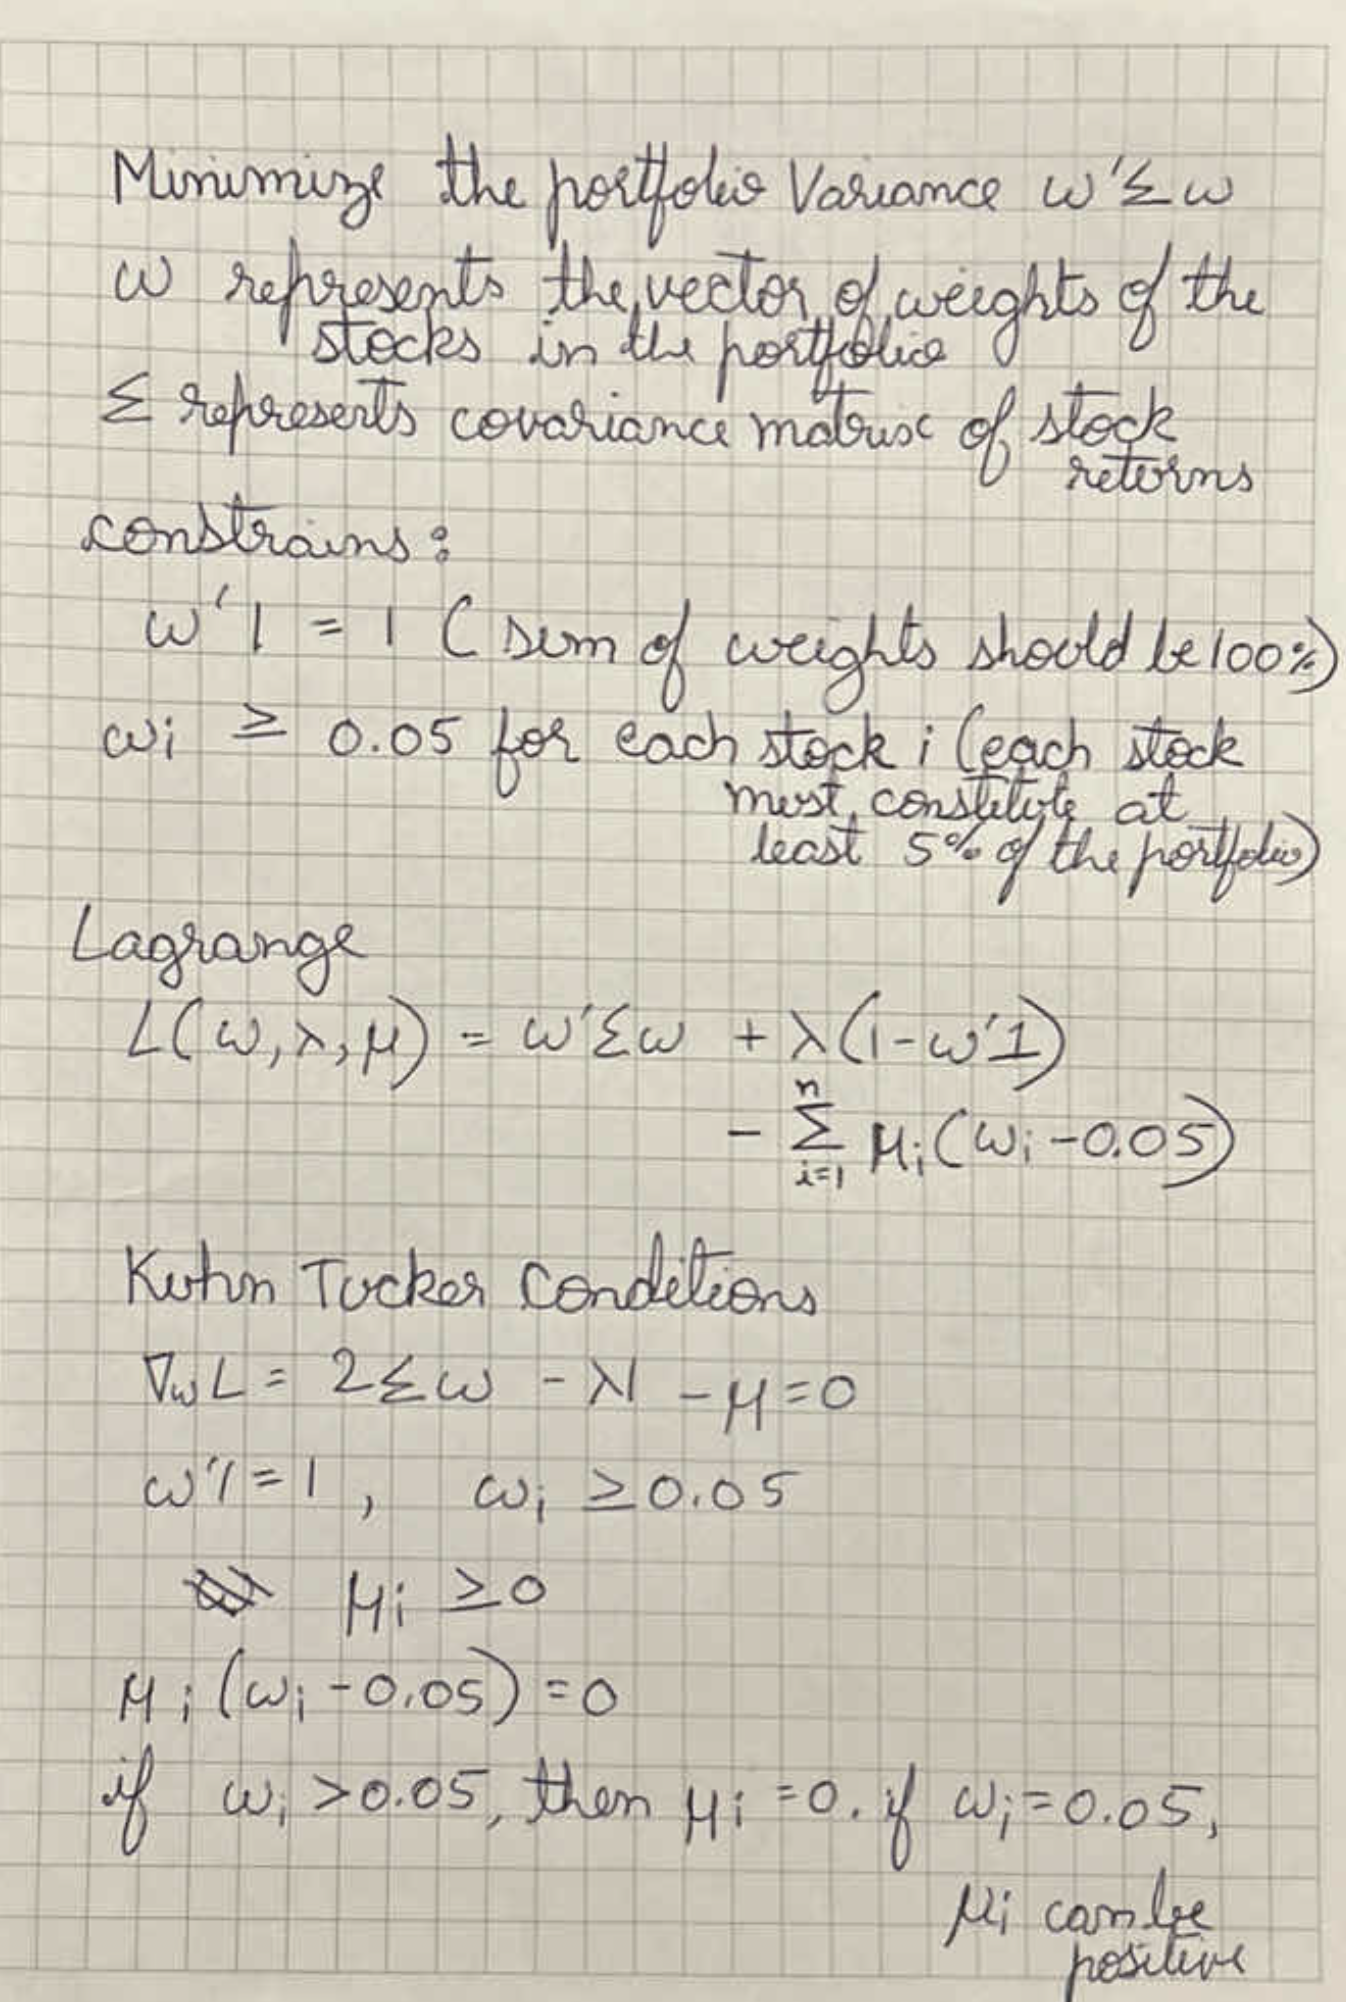 Minimize the portfolio Variance ω'Σω
ω represents the vector of weights of the
stocks in the portfolio
Σ represents covariance matrix of stock
returns
constrains:
ω'1 = 1 (sum of weights should be 100%)
ωi ≥ 0.05 for each stock i (each stock
must constitute at
least 5% of the portfolio)
Lagrange
L(ω,λ,μ) = ω'Σω + λ(1-ω'1)
- Σ_{i=1}^{n} μi(ωi -0.05)
Kuhn Tucker Conditions
∇ωL = 2Σω - λ1 - μ = 0
ω'1 = 1, ωi ≥ 0.05
μi ≥ 0
μi(ωi -0.05) = 0
if ωi > 0.05, then μi = 0. if ωi = 0.05,
μi can be
positive